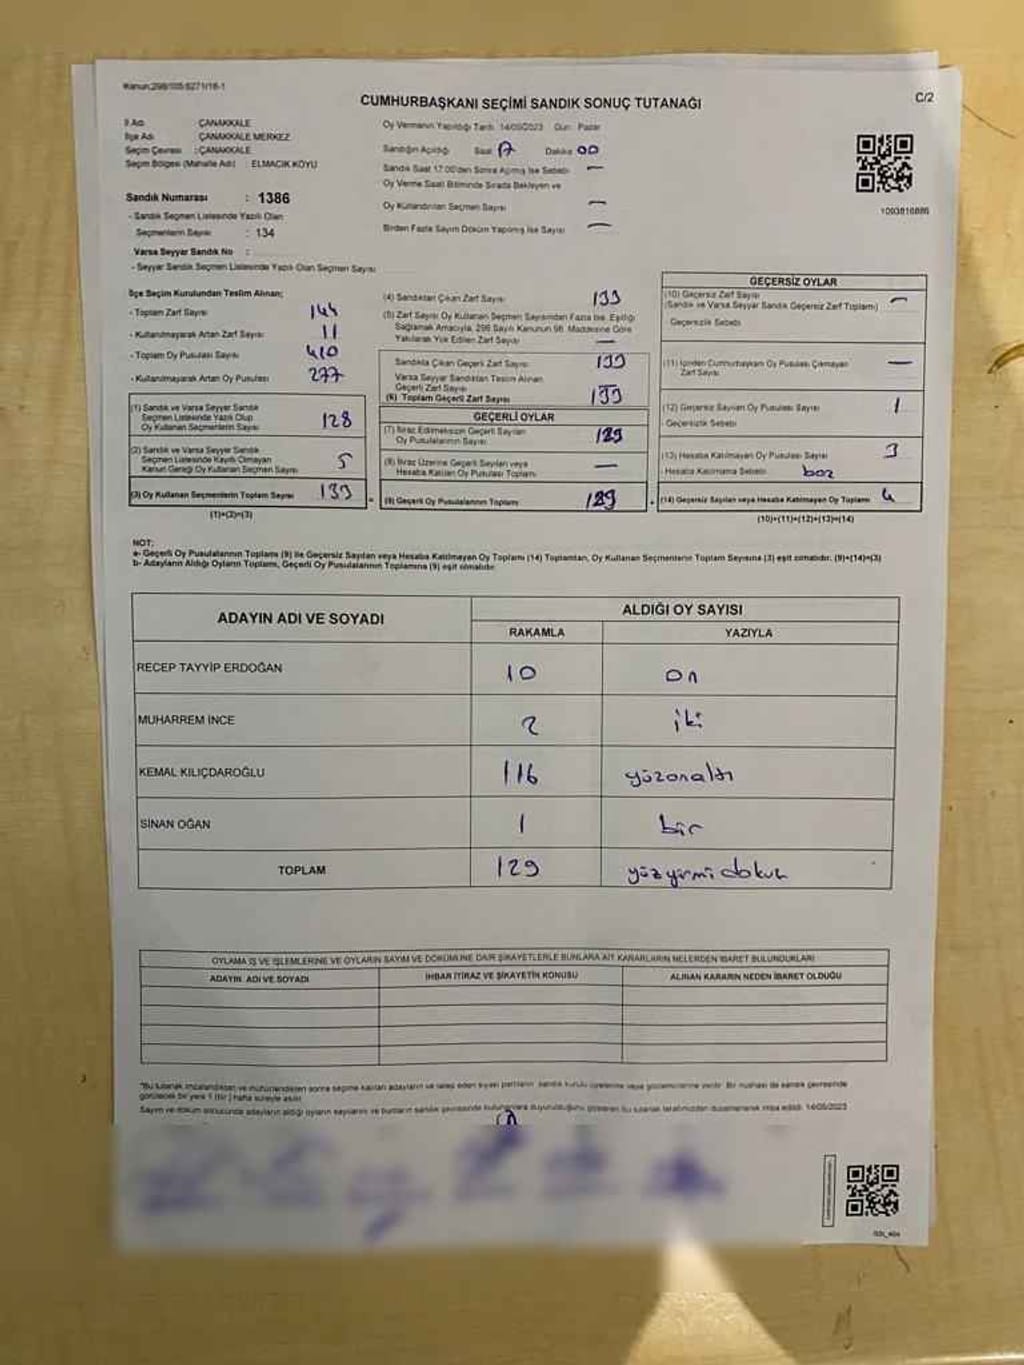 Kanun:298/105:5271/16-1
CUMHURBAŞKANI SEÇİMİ SANDIK SONUÇ TUTANAĞI
C/2
İl Adı : ÇANAKKALE
İlçe Adı : ÇANAKKALE MERKEZ
Seçim Çevresi : ÇANAKKALE
Seçim Bölgesi (Mahalle Adı) : ELMACIK KÖYÜ
Sandık Numarası : 1386
- Sandık Seçmen Listesinde Yazılı Olan
Seçmenlerin Sayısı : 134
Varsa Seyyar Sandık No :
- Seyyar Sandık Seçmen Listesinde Yazılı Olan Seçmen Sayısı
Oy Vermenin Yapıldığı Tarih 14/05/2023 Gün: Pazar
Sandığın Açıldığı Saat 17 Dakika 00
Sandık Saat 17.00'den Sonra Açılmış İse Sebebi —
Oy Verme Saati Bitiminde Sırada Bekleyen ve
Oy Kullandırılan Seçmen Sayısı —
Birden Fazla Sayım Döküm Yapılmış İse Sayısı —
1093816886
İlçe Seçim Kurulundan Teslim Alınan;
- Toplam Zarf Sayısı 144
- Kullanılmayarak Artan Zarf Sayısı 11
- Toplam Oy Pusulası Sayısı 410
- Kullanılmayarak Artan Oy Pusulası 277
(1) Sandık ve Varsa Seyyar Sandık
Seçmen Listesinde Yazılı Olup
Oy Kullanan Seçmenlerin Sayısı 128
(2) Sandık ve Varsa Seyyar Sandık
Seçmen Listesinde Kayıtlı Olmayan
Kanun Gereği Oy Kullanan Seçmen Sayısı 5
(3) Oy Kullanan Seçmenlerin Toplam Sayısı 133
(1)+(2)=(3)
(4) Sandıktan Çıkan Zarf Sayısı 133
(5) Zarf Sayısı Oy Kullanan Seçmen Sayısından Fazla İse, Eşitliği
Sağlamak Amacıyla, 298 Sayılı Kanunun 98. Maddesine Göre
Yakılarak Yok Edilen Zarf Sayısı —
Sandıkta Çıkan Geçerli Zarf Sayısı 133
Varsa Seyyar Sandıktan Teslim Alınan
Geçerli Zarf Sayısı
(6) Toplam Geçerli Zarf Sayısı 133
GEÇERLİ OYLAR
(7) İtiraz Edilmeksizin Geçerli Sayılan
Oy Pusulalarının Sayısı 129
(8) İtiraz Üzerine Geçerli Sayılan veya
Hesaba Katılan Oy Pusulası Toplamı —
(9) Geçerli Oy Pusulalarının Toplamı 129
GEÇERSİZ OYLAR
(10) Geçersiz Zarf Sayısı
(Sandık ve Varsa Seyyar Sandık Geçersiz Zarf Toplamı) —
- Geçersizlik Sebebi
(11) İçinden Cumhurbaşkanı Oy Pusulası Çıkmayan
Zarf Sayısı —
(12) Geçersiz Sayılan Oy Pusulası Sayısı 1
- Geçersizlik Sebebi
(13) Hesaba Katılmayan Oy Pusulası Sayısı 3
- Hesaba Katılmama Sebebi boz
(14) Geçersiz Sayılan veya Hesaba Katılmayan Oy Toplamı 4
(10)+(11)+(12)+(13)=(14)
NOT:
a- Geçerli Oy Pusulalarının Toplamı (9) ile Geçersiz Sayılan veya Hesaba Katılmayan Oy Toplamı (14) Toplamları, Oy Kullanan Seçmenlerin Toplam Sayısına (3) eşit olmalıdır. (9)+(14)=(3)
b- Adayların Aldığı Oyların Toplamı, Geçerli Oy Pusulalarının Toplamına (9) eşit olmalıdır.
ADAYIN ADI VE SOYADI
ALDIĞI OY SAYISI
RAKAMLA YAZIYLA
RECEP TAYYİP ERDOĞAN 10 on
MUHARREM İNCE 2 iki
KEMAL KILIÇDAROĞLU 116 yüzonaltı
SİNAN OĞAN 1 bir
TOPLAM 129 yüzyirmi dokuz
OYLAMA İŞ VE İŞLEMLERİNE VE OYLARIN SAYIM VE DÖKÜMÜNE DAİR ŞİKAYETLERLE BUNLARA AİT KARARLARIN NELERDEN İBARET BULUNDUKLARI
ADAYIN ADI VE SOYADI İHBAR İTİRAZ VE ŞİKAYETİN KONUSU ALINAN KARARIN NEDEN İBARET OLDUĞU